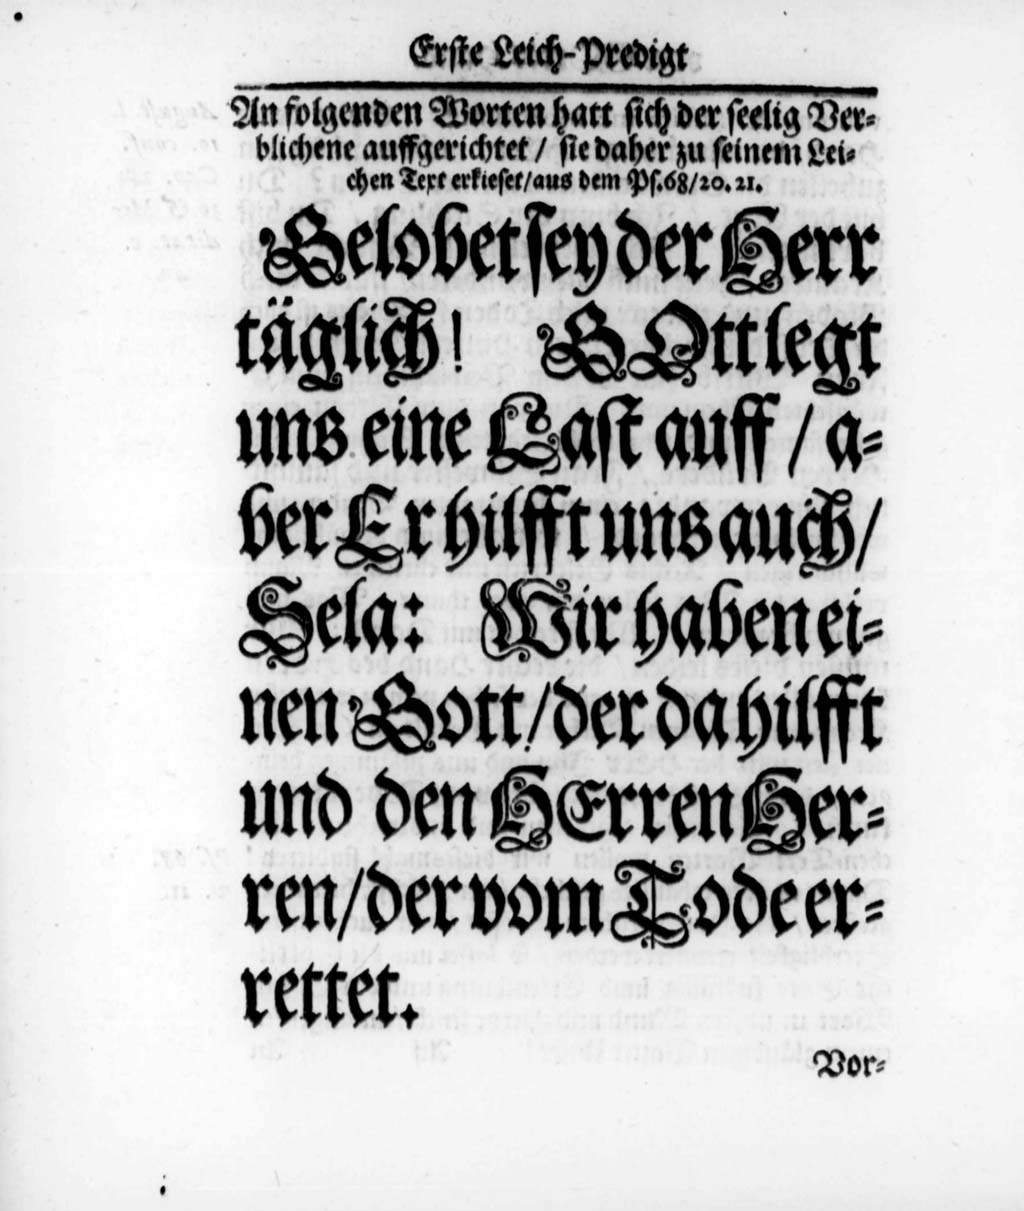 Erſte Leich-Predigt
An folgenden Worten hatt ſich der ſeelig Ver⸗
blichene auffgerichtet / ſie daher zu ſeinem Lei⸗
chen Text erkieſet/aus dem Pſ.68/20.21.
Gelobet ſey der Herr
täglich! GOtt legt
uns eine Laſt auff / a⸗
ber Er hilfft uns auch/
Sela: Wir haben ei⸗
nen Gott/der da hilfft
und den HErren Her⸗
ren/der vom Tode er⸗
rettet.
Vor⸗